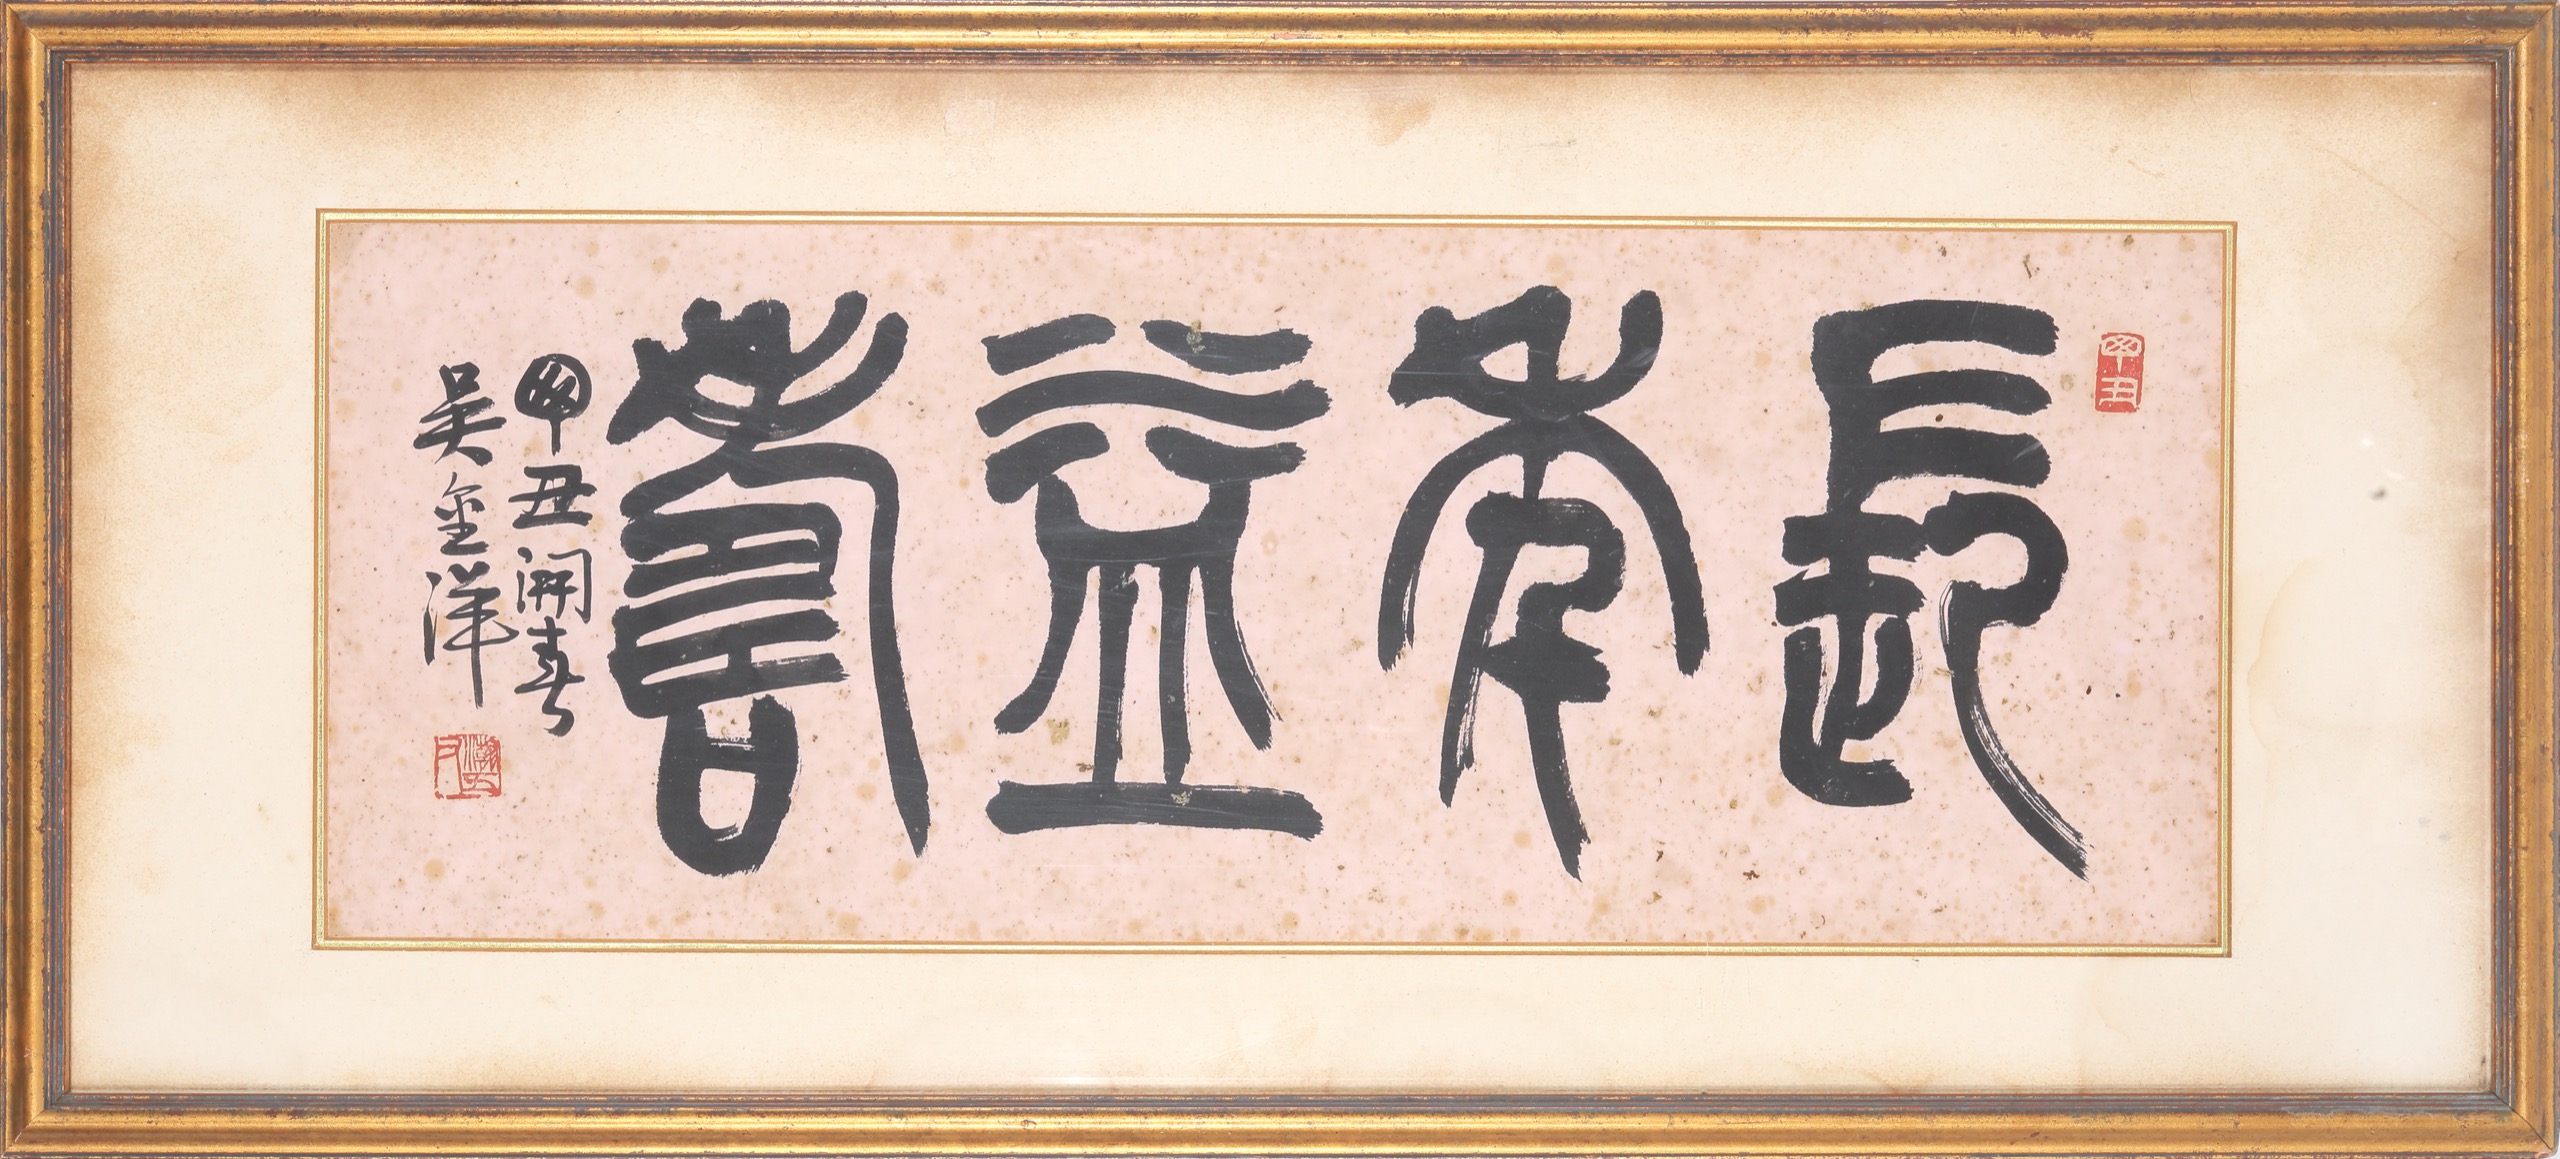 長年益壽
甲丑開春
吳金洋
甲丑